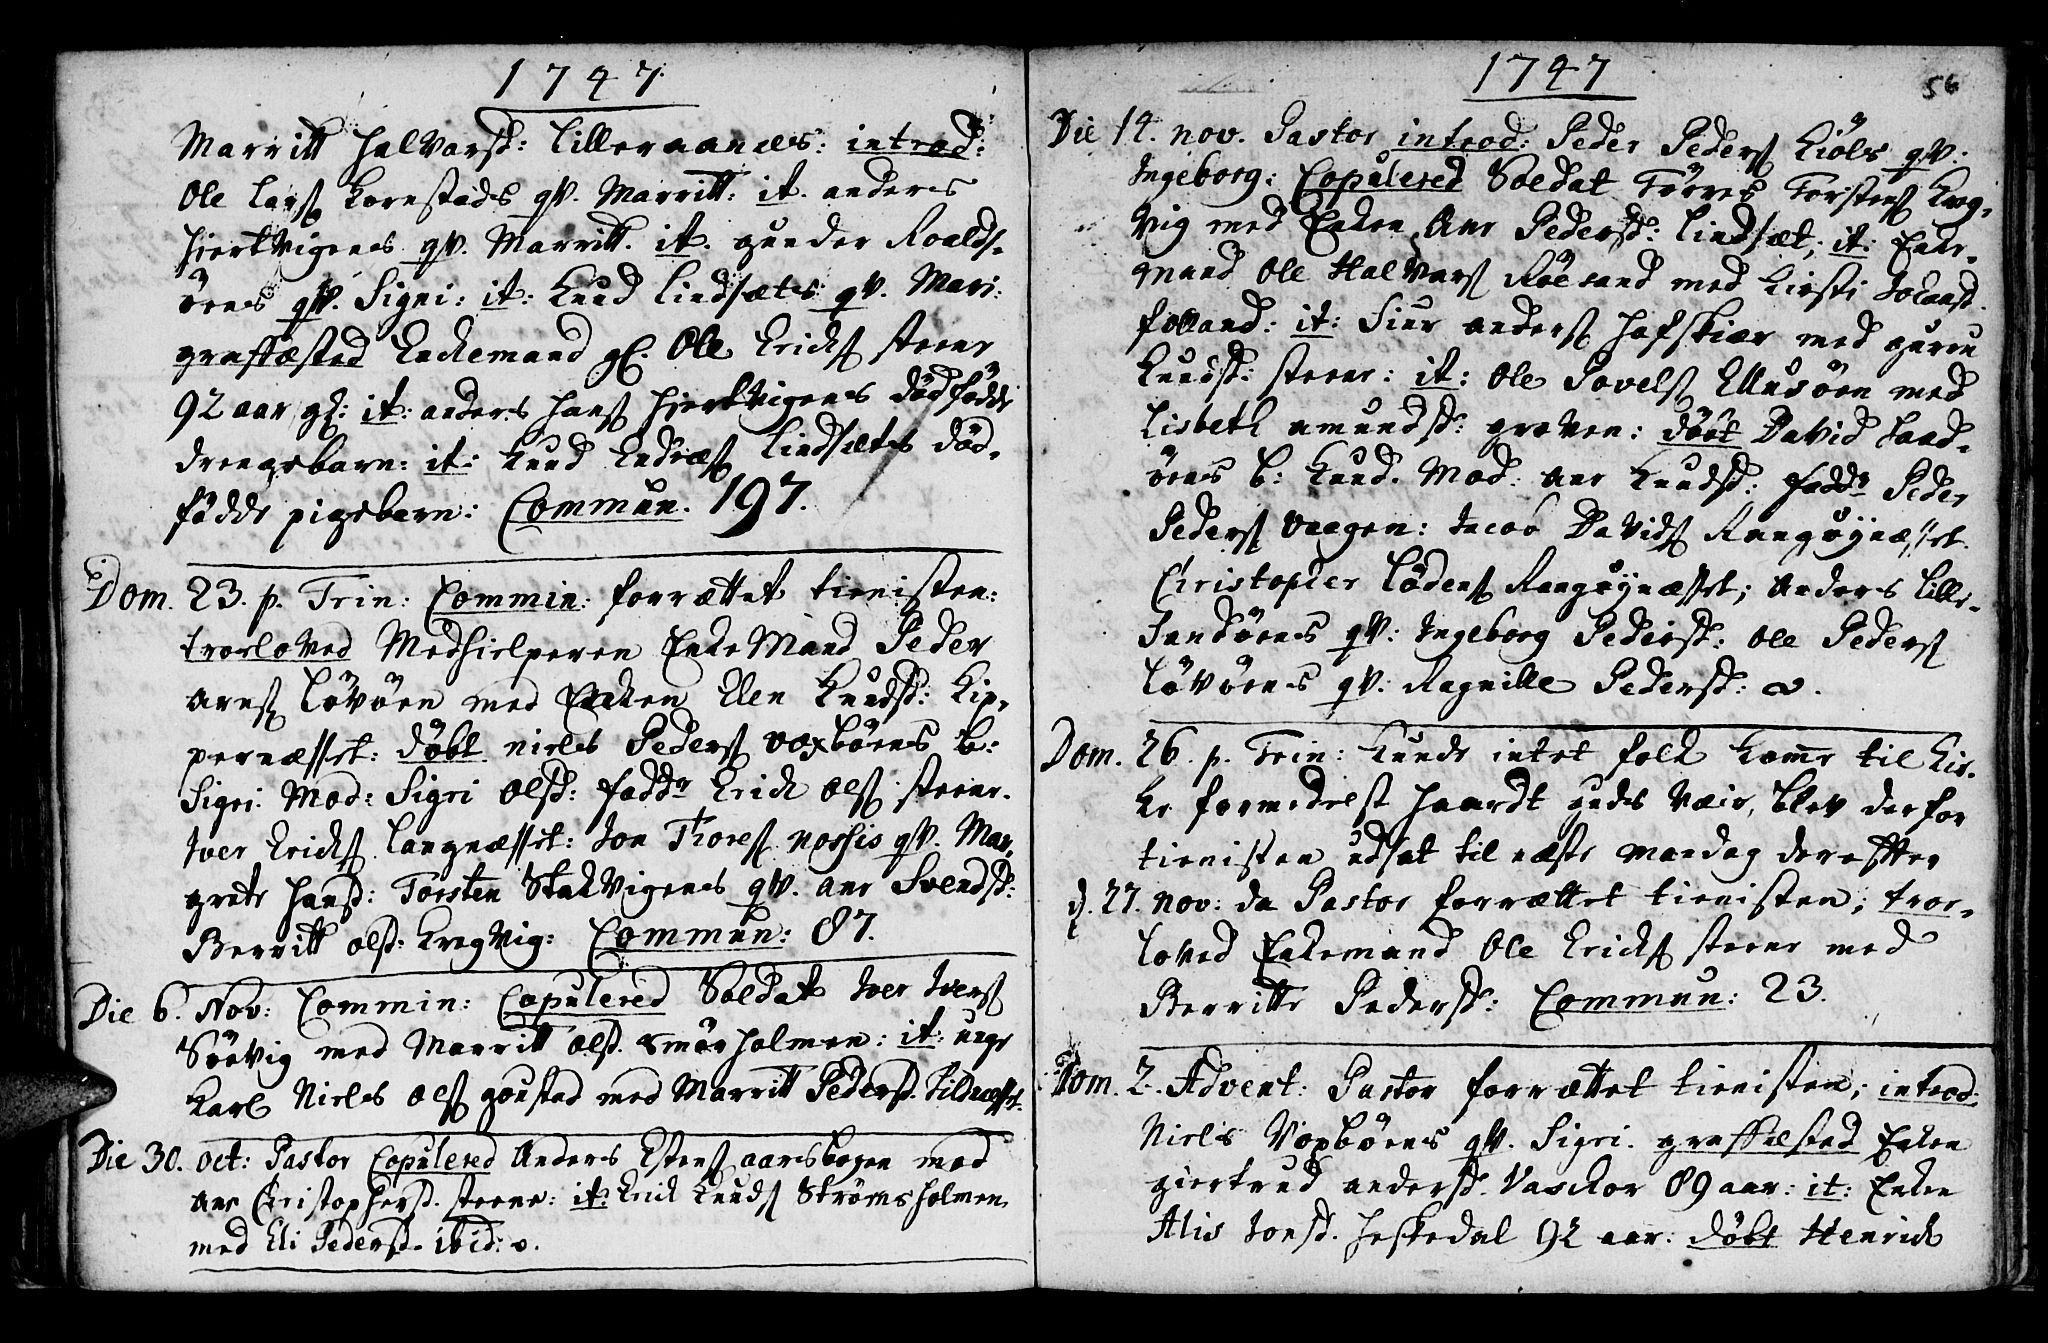 1747.
Marritt Halvorsd: Lilleraandes: introd:
Ole Lars Kornstads qv. Marritt: it. anders
Hiertvigenes qv. Marritt. it. gunder Roalds-
öens qv. Signi: it: Knud Lindsæts qv. Mari:
graffæsted Enckemand gl. Ole Ericks steene
92 aar gl: it: anders Hans Hiertvigenes dödfödde
drengebarn: it: Knud Endres Lindsæts död-
födde pigebarn: Commun. 197.
Dom. 23. p. Trin: Commin: forrættet tienisten:
troeloved Medhielperen EnkeMand Peder
arns Lövöen med Enken Elen Knudsd: Kip-
pernæsset: döbt niels Peders voxböens b:
Sigri. Mod: Sigri Olsd: fadd.r Erick Ols steene.
Iver Ericks Langnæsset: Jon Thores nosHis qv. Mar-
grete Hansd: Torsten Stakvigenes qv. ane Svendsd:
Berritt olsd: Kregvig: Commun: 87.
Die 6. Nov: Commin: Copulered Soldat Iver Ivers
Sörvig med Marritt Olsd. Smörholmen: it: unge
Karl Niels Ols göusted med Marritt Pedersd. Sildnæsset.
Die 30. oct: Pastor Copulered Anders Estens aarsbogen med
ane Christophersd. steene: it: Erick Knuds Strömsholmen
med Eli Pedersd. ibid:
1747
56
Die 14. nov. Pastor introd: Peder Peders Kiöls qv.
Ingeborg: Copulered Soldat Törres Torstens Kreg-
vig med Enken Ane Pedersd: Lindsæt; it: Enke-
mand Ole Halvors Röesand med Kirsti Johansd.
folland: it: Siur anders Hafskiær med guru
Knudsd: steene: it: Ole Povels Ellusöen med
Lisbeth amundsd: groven: döbt David Sand-
öens b: Knud. Mod: ane Knudsd: fadd.r Peder
Peders vaagen: Jacob Davids Rangöynæsset.
Christopher Lödens Rangöynæsset; anders Lille-
Sandöens qv: Ingeborg Pedersd: Ole Peders
Lövöens qv: Ragnille Pedersd:
Dom. 26. p. Trin: Kunde intet folk komme til Kir-
ke formedelst haardt guds væir, blev derfor
tienisten udsat til næste mandag derefter
d. 27. nov: da Pastor forrættet tienisten; troe-
loved Enkemand Ole Ericks steene med
Berritte Pedersd: Commun: 23.
Dom. 2. Advent: Pastor forrættet tienisten; introd:
Niels Voxböens qv. Sigri. graffæsted Enken
giertrud andersd. Vasckor 89 aar: it: Enken
Alis Jonsd. Heskedal 92 aar: döbt Henrich